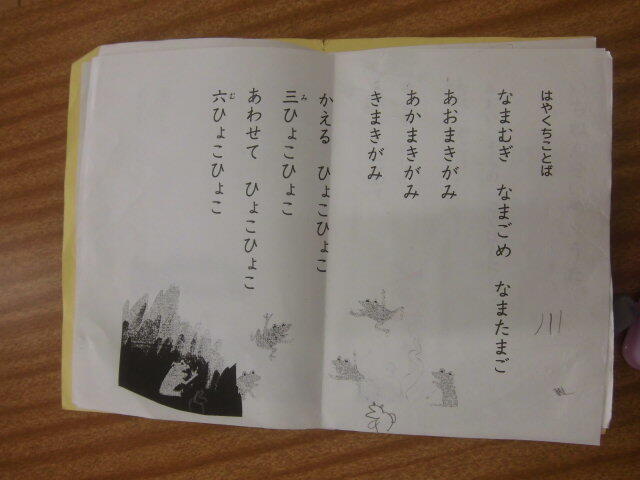 はやくちことば
なまむぎ　なまごめ　なまたまご
あおまきがみ
あかまきがみ
きまきがみ
かえる　ひょこひょこ
三ひょこひょこ
み
あわせて　ひょこひょこ
六ひょこひょこ
む